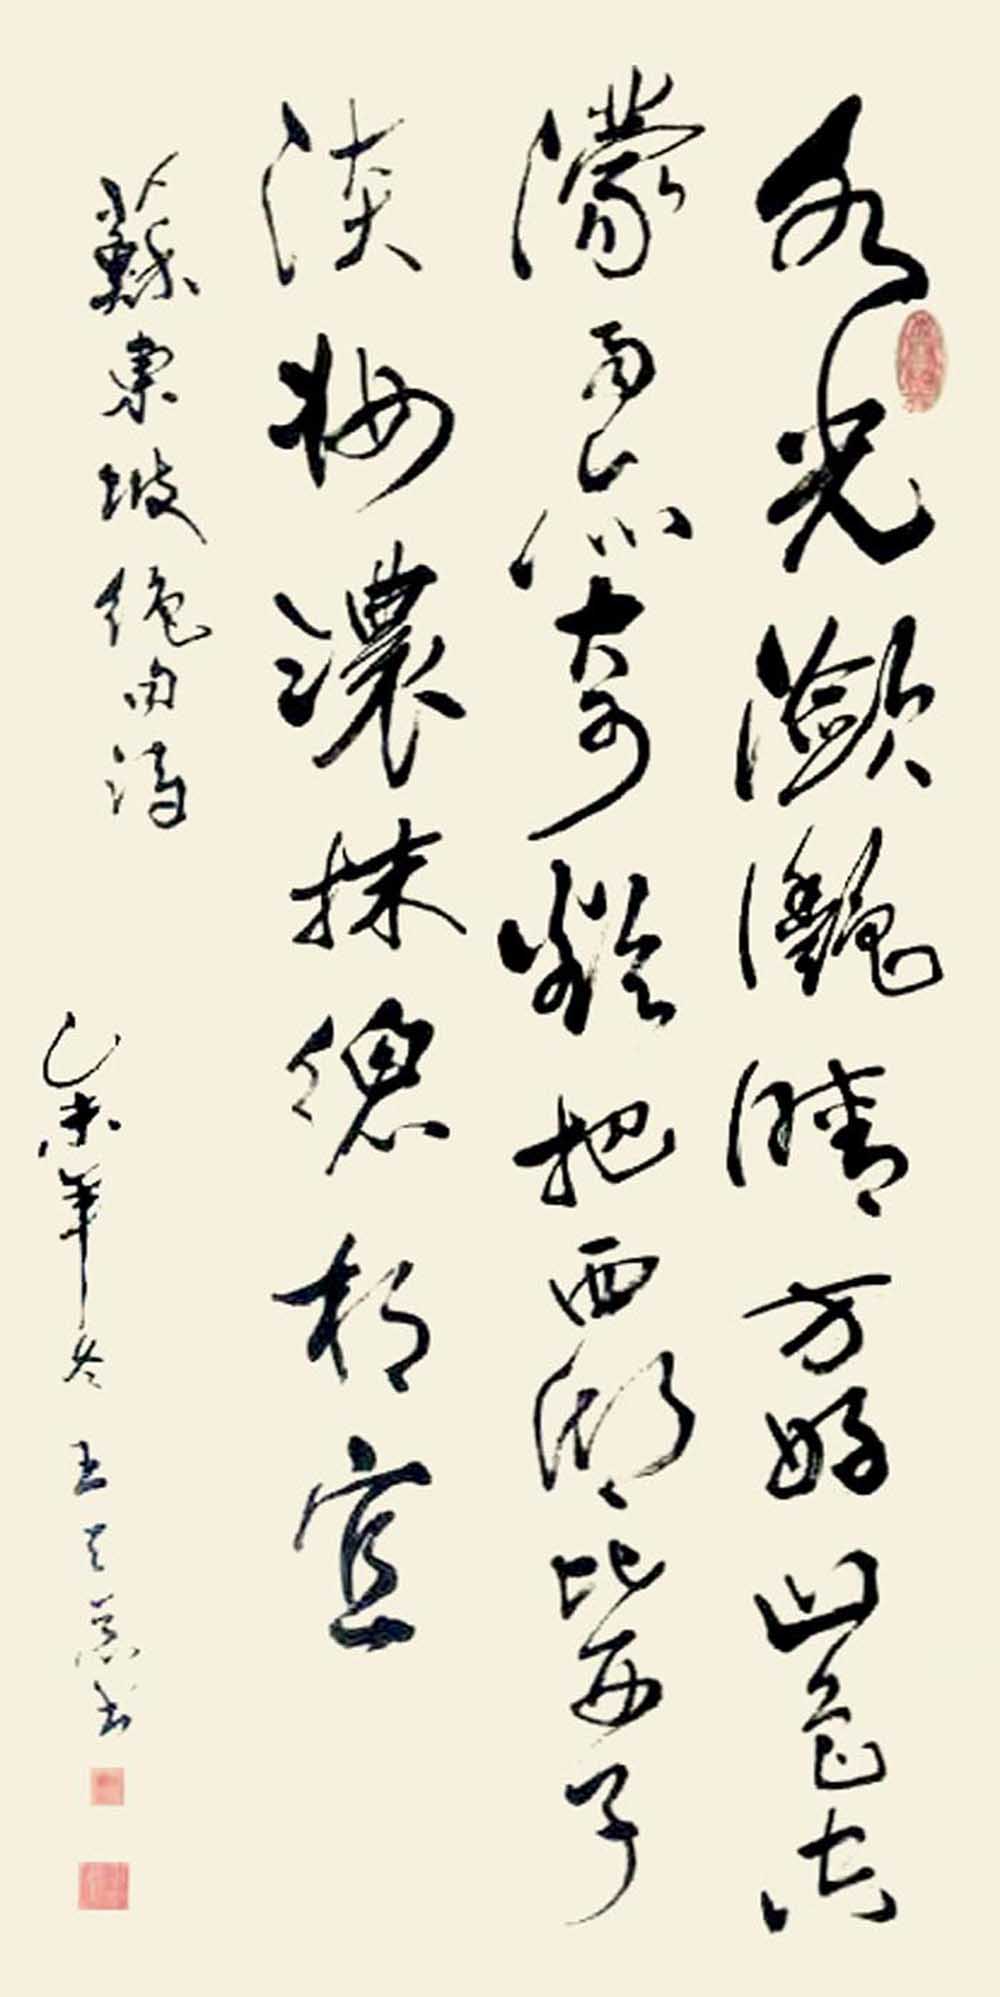 水光瀲灧晴方好山色空
濛雨亦奇欲把西湖比西子
淡妝濃抹總相宜
蘇東坡絕句詩
乙未年冬 王 書